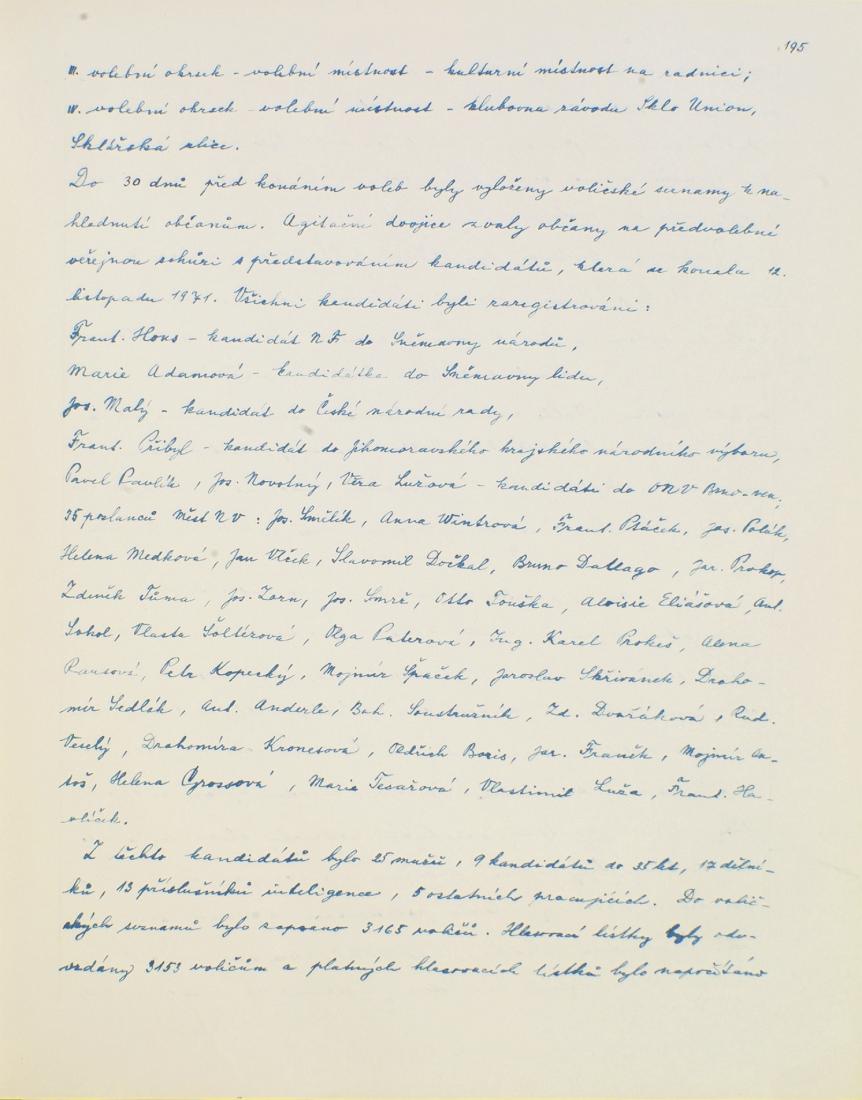 195
III. volební okrsek - volební místnost - kulturní místnost na radnici;
IV. volební okrsek - volební místnost - klubovna závodu Sklo Union,
Sklářská ulice.
Do 30 dnů před konáním voleb byly vyloženy voličské seznamy k na-
hlédnutí občanům. Agitační dvojice zvaly občany na předvolební
veřejnou schůzi s představováním kandidátů, která se konala 12.
listopadu 1971. Všichni kandidáti byli zaregistrováni:
Frant. Hons - kandidát NF do Sněmovny národů,
Marie Adamová - kandidátka do Sněmovny lidu,
Jos. Malý - kandidát do České národní rady,
Frant. Přibyl - kandidát do Jihomoravského krajského národního výboru,
Pavel Pavlík, Jos. Novotný, Věra Lužová - kandidáti do ONV Brno-ven.,
35 poslanců Měst NV: Jos. Smělík, Anna Wintrová, Frant. Ptáček, Jos. Polák,
Helena Medková, Jan Vlček, Slavomil Dočkal, Bruno Dallago, Jar. Prokop,
Zdeněk Tůma, Jos. Zorn, Jos. Smrž, Otto Fouška, Aloisie Eliášová, Ant.
Sokol, Vlasta Šoltézová, Olga Paterová, Ing. Karel Prokeš, Alena
Rausová, Petr Kopecký, Mojmír Špaček, Jaroslav Skřivánek, Draho-
mír Sedlák, Ant. Anderle, Boh. Soustružník, Zd. Dvořáková, Rud.
Veselý, Drahomíra Kronesová, Oldřich Boris, Jar. Franěk, Mojmír An-
toš, Helena Grossová, Marie Tesařová, Vlastimil Luža, Frant. Ha-
vlíček.
Z těchto kandidátů bylo 25 mužů, 9 kandidátů do 35 let, 17 dělní-
ků, 13 příslušníků inteligence, 5 ostatních pracujících. Do volič-
ských seznamů bylo zapsáno 3165 voličů. Hlasovací lístky byly odo-
vzdány 3153 voličům a platných hlasovacích lístků bylo napočítáno